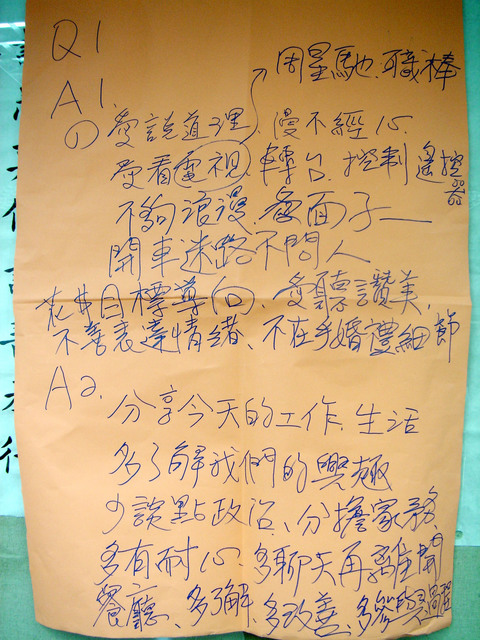 Q1
周星馳、職棒
A1.
の愛說道理、漫不經心、
愛看電視、轉台、控制遙控器
不夠浪漫、愛面子—
開車迷路不問人
花井目標導向、愛聽讚美、
不善表達情緒、不在乎婚禮細節
A2.
分享今天的工作、生活
多了解我們的興趣
少談點政治、分擔家務、
多有耐心、多聊天再離開
餐廳、多了解、多改善、多